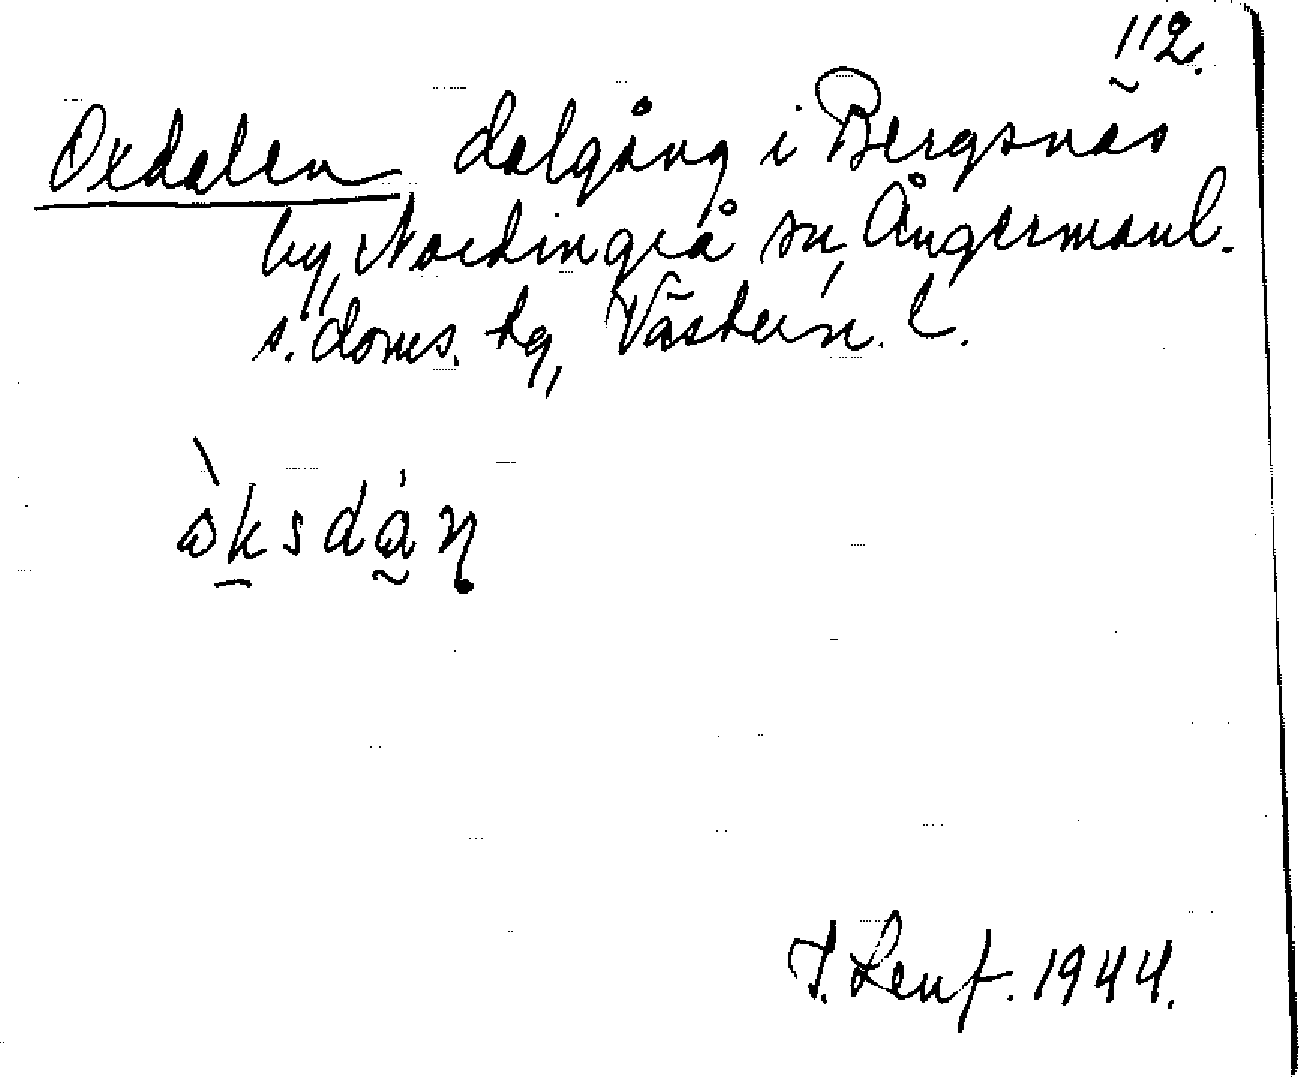 112.
Oxdalen dalgång i Bergsnäs
by, Nordingrå sn, Ångermanl.
s. doms. tg, Västern. l.
òksdán
J. Lenf. 1944.